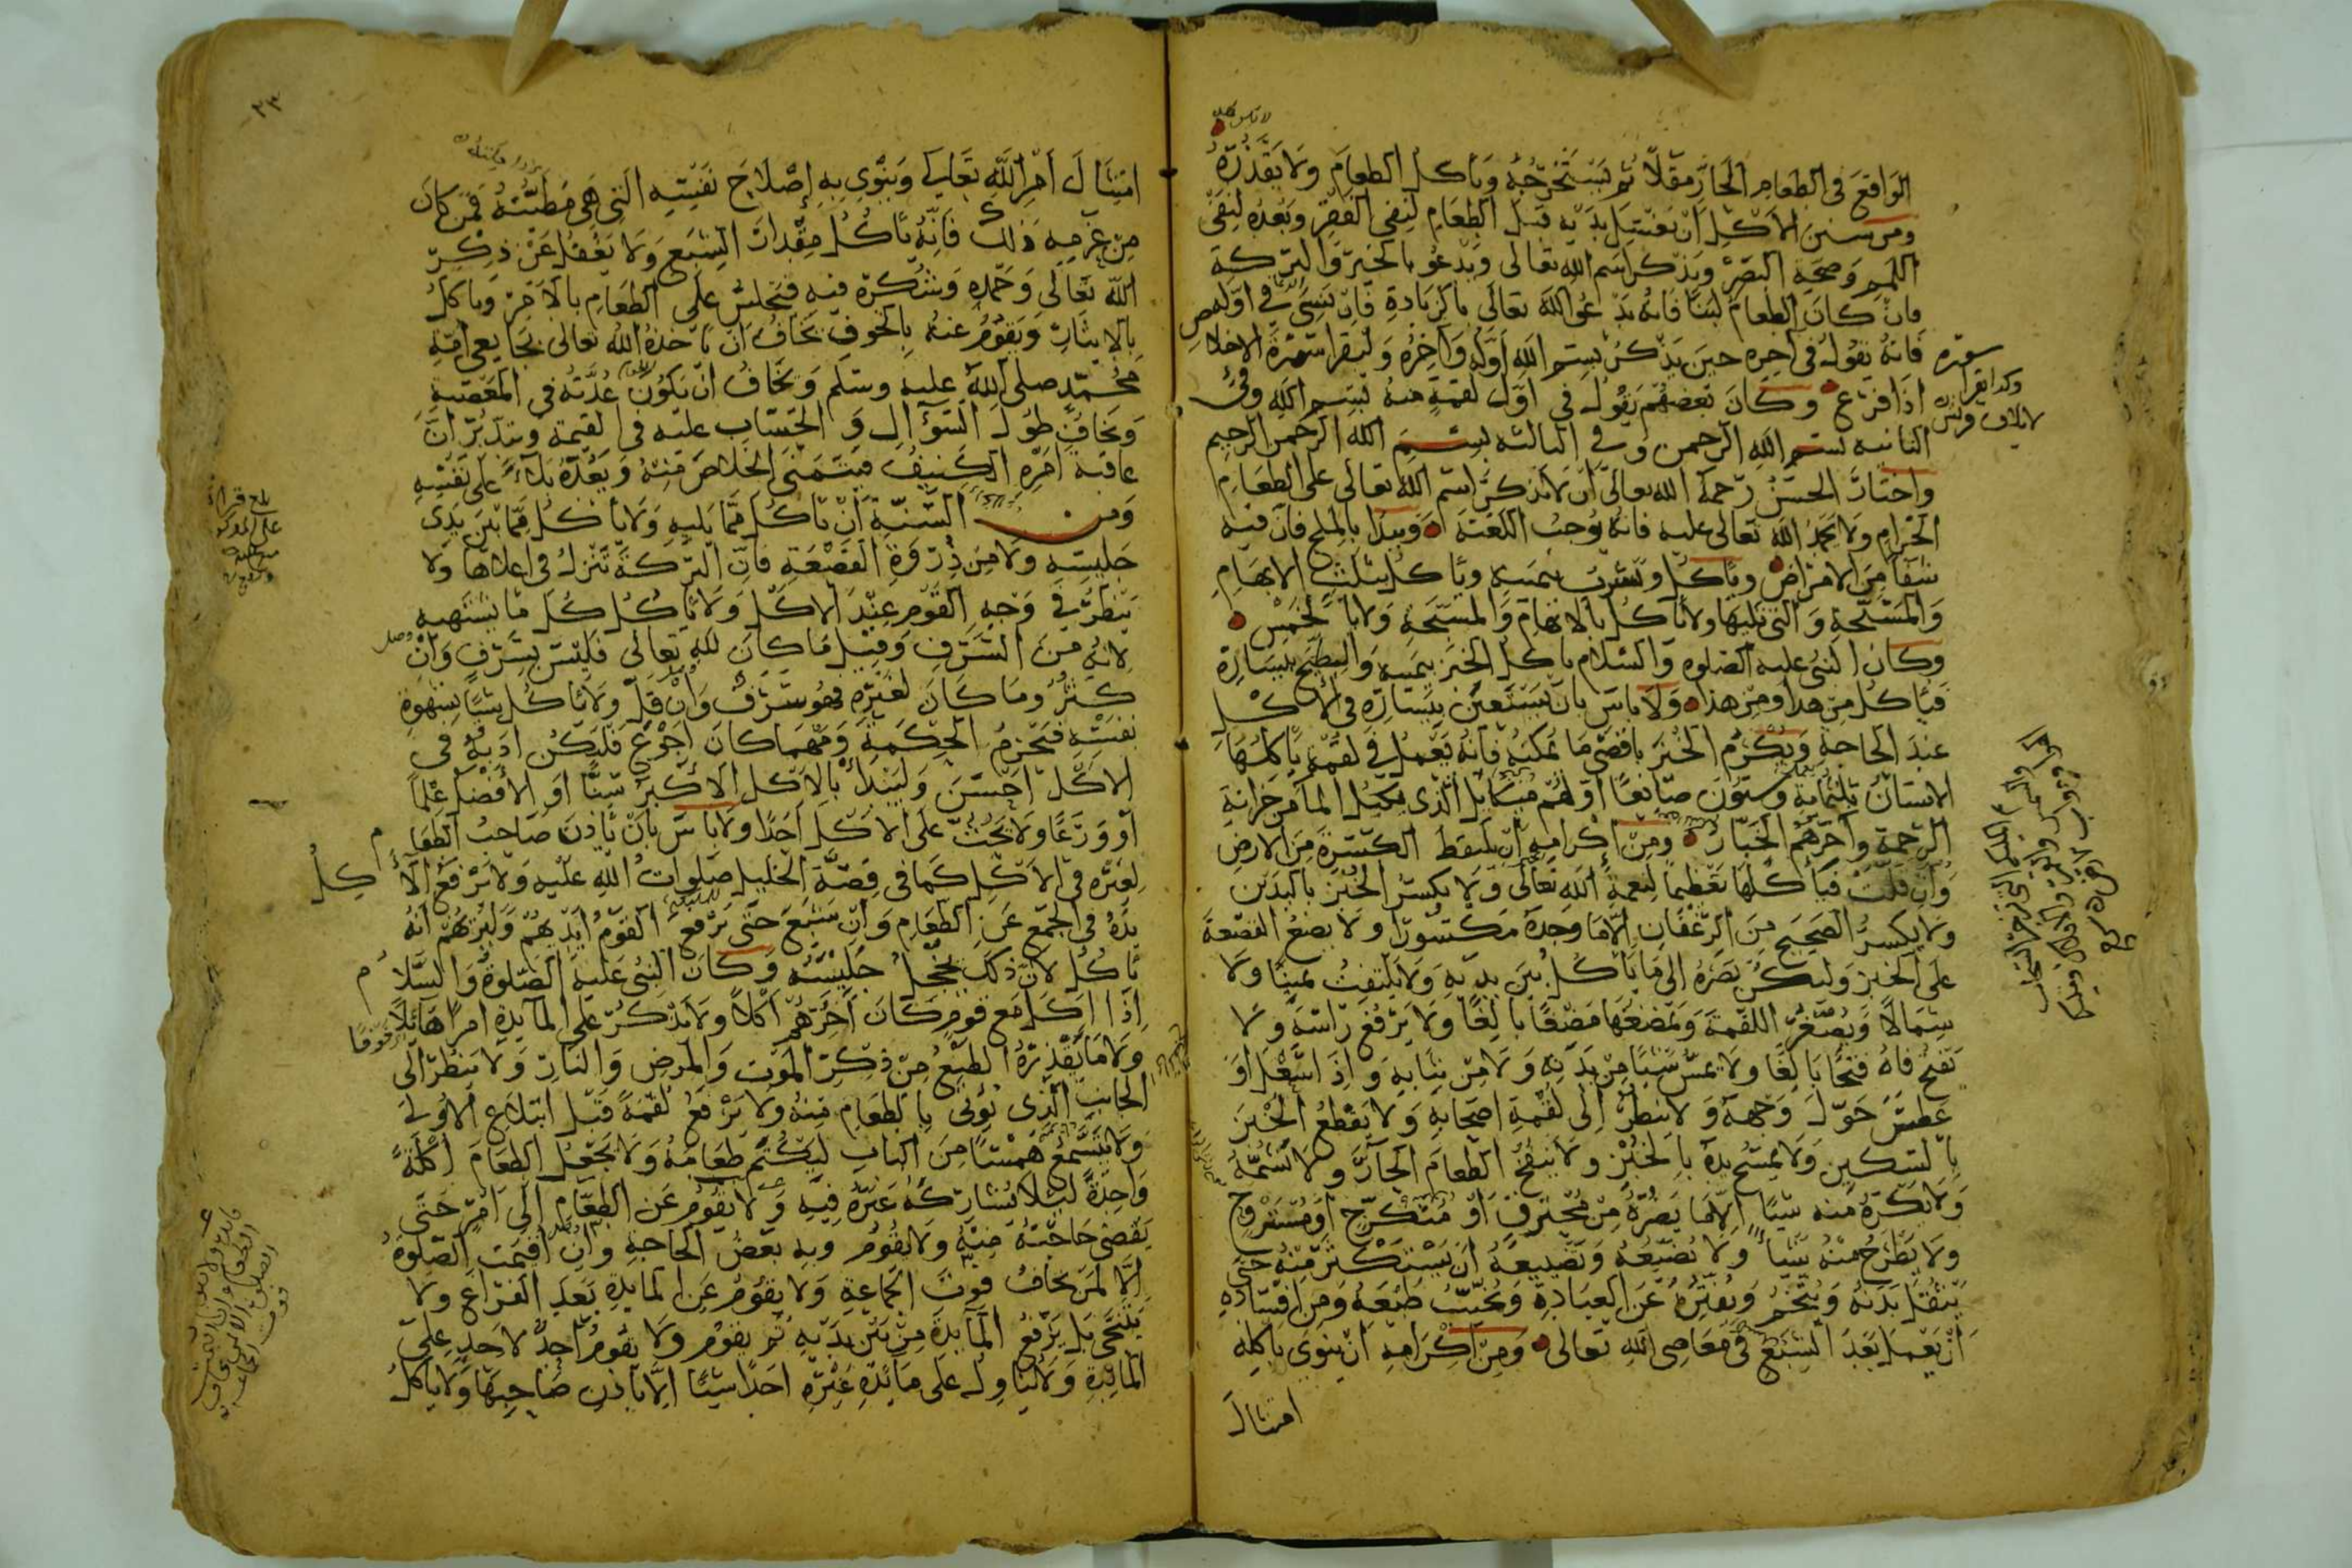 الواقع في الطعام الحار مقلا ثم يستخرجه وياكل الطعام ولا يقذره
ومن سنن الاكل ان يغتسل يديه قبل الطعام لنفي الفقر وبعده لنفي
اللمم وصحة البصر ويذكر اسم الله تعالى ويدعو بالخير والبركة
فان كان الطعام لبنا فانه يدعو الله تعالى بالزيادة فان نسي في اوله
فانه يقول في اخره حين يذكر بسم الله اوله واخره وليقرا سورة الاخلاص
اذا فرغ وكان بعضهم يقول في اول لقمة منه بسم الله وفي
الثانيه بسم الله الرحمن وفي الثالثه بسم الله الرحمن الرحيم
واختار الحسن رحمه الله تعالى ان لا يذكر اسم الله تعالى على الطعام
الحرام ولا يحمد الله تعالى عليه فانه يوجب اللعنة ويبدا بالملح فان فيه
شفآ من الامراض وياكل ويشرب بيمينه وياكل بثلث الابهام
والمسبحة والتي تليها ولا ياكل بالابهام والمسبحة ولا بالخمس
وكان النبي عليه الصلوه والسلام ياكل الخبز بيمينه والبطيخ بيساره
فياكل من هذا ومن هذا ولا باس بان يستعين بيساره في الاكل
عند الحاجة ويكرم الخبز باقصى ما يمكنه فانه يعمل في لقمة ياكلها
الانسان ثلثماية وستون صانعا اولهم ميكائيل الذي يكيل الما من خزانة
الرحمة واخرهم الخباز ومن اكرامه ان يلتقط الكسرة من الارض
وان قلت فياكلها تعظيما لنعمة الله تعالى ولا يكسر الخبز باليدين
ولا يكسر الصحيح من الرغفان الا ما وجده مكسورا ولا يضع القصعة
على الخبز وليكن بصره الى ما ياكل بين يديه ولا يلتفت يمينا ولا
شمالا ويصغر اللقمة ويمضغها مضغا بالغا ولا يرفع راسه ولا
يفتح فاه فتحا بالغا ولا يمس شيئا من بدنه ولا من ثيابه واذا سعل او
عطس حول وجهه ولا ينظر الى لقمة اصحابه ولا يقطع الخبز
بالسكين ولا يمسح يده بالخبز ولا ينفخ الطعام الحار ولا يشمه
ولا يكره منه شيئا الا ما يضره من محترق او متكرج او مستروح
ولا يطرح منه شيئا ولا يضيعه وتضييعه ان يستكثر منه حتى
يثقل بدنه ويتخم ويفتره عن العبادة ويخبث طبعه ومن افساده
ان يعمل بعد الشبع في معاصي الله تعالى ومن اكرامه ان ينوي باكله
امتثال
٢٣
امتثال امر الله تعالى وينوي به اصلاح نفسه التي هي مطيته فمن كان
من عزمه ذلك فانه ياكل مقدار الشبع ولا يغفل عن ذكر
الله تعالى وحمده وشكره فيه فيجلس على الطعام بالاخر وياكل
بالايثار ويقوم عنه بالخوف يخاف ان ياخذه الله تعالى بجايعي امة
محمد صلى الله عليه وسلم ويخاف ان يكون عدته في المعصية
ويخاف طول السؤال والحساب عليه في القيمة ويتدبر ان
عاقبة امره الكنيف فيتمنى الخلاص منه ويعده بلآء على نفسه
ومن السنة ان ياكل مما يليه ولا ياكل مما بين يدي
جليسه ولا من ذروة القصعة فان البركة تنزل في اعلاها ولا
ينظر في وجه القوم عند الاكل ولا ياكل كل ما يشتهيه
لانه من السرف وقيل ما كان لله تعالى فليس بسرف وان
كثر وما كان لغيره فهو سرف وان قل ولا ياكل شيئا بشهوة
نفسه فتحرم الحكمة ومهما كان اجوع فليكن ادبه في
الاكل احسن وليبدا بالاكل الاكبر سنا او الافضل علما
او ورعا ولا يحث على الاكل احدا ولا باس بان ياذن صاحب الطعام
لغيره في الاكل كما في قصة الخليل صلوات الله عليه ولا يرفع الآكل
يده في الجمع عن الطعام وان شبع حتى يرفع القوم ايديهم وليرهم انه
ياكل لان ذلك يخجل جليسه وكان النبي عليه الصلوة والسلام
اذا اكل مع قوم كان اخرهم اكلا ولا يذكر على المآيدة امرا هائلا
ولا ما يقذره الطبع من ذكر الموت والمرض والنار ولا ينظر الى
الجانب الذي يؤتى بالطعام منه ولا يرفع لقمة قبل ابتلاع الاولى
ولا يتسمع همسا من الباب ليكتم طعامه ولا يجعل الطعام اكلة
واحدة لئلا يشاركه غيره فيه ولا يقوم عن الطعام الى امر حتى
يقضي حاجته منه ولا يقوم وبه بعض الحاجة وان اقيمت الصلوة
الا لمن يخاف فوت الجماعة ولا يقوم عن المايدة بعد الفراغ ولا
يتنحى بل يرفع المآيدة من بين يديه ثم يقوم ولا يقوم احد لاحد على
المائدة ولا يناول على مائدة غيره احدا شيئا الا باذن صاحبها ولا ياكل